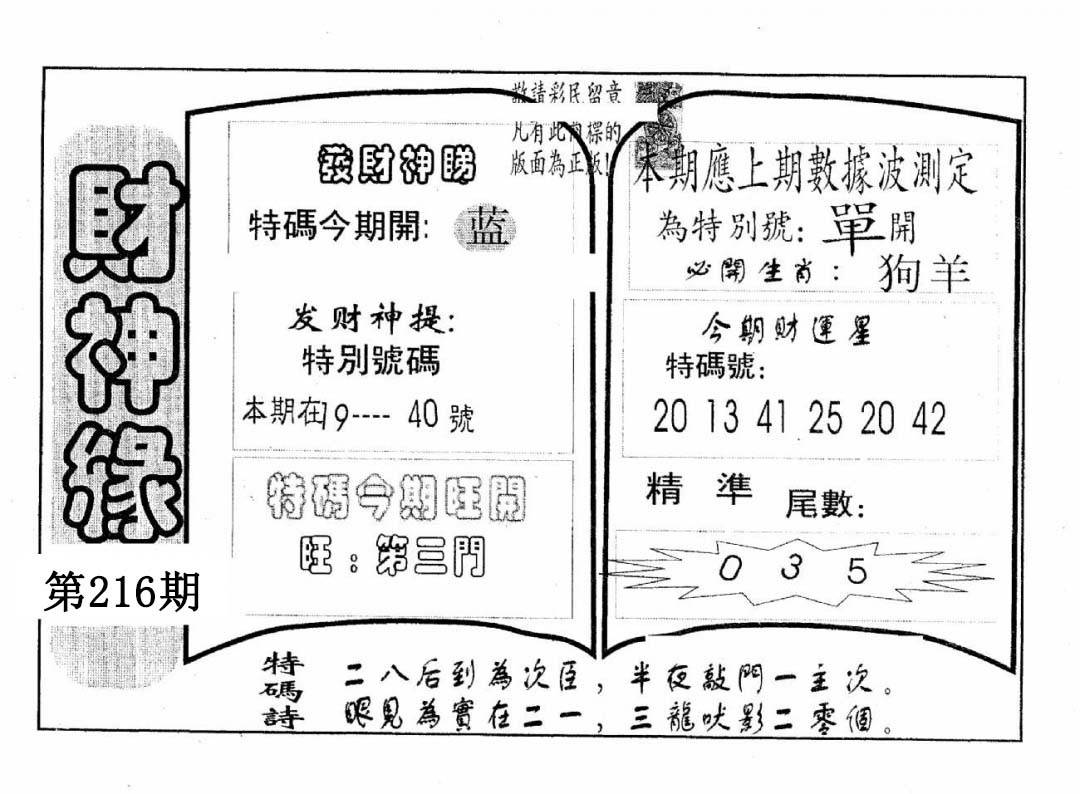 財神緣
第216期
敬請彩民留意
凡有此內標的
版面為正版!
發財神賜
特碼今期開: 蓝
发财神提:
特別號碼
本期在9---- 40 號
特碼今期旺開
旺：第三門
本期應上期數據波測定
為特別號: 單開
必開生肖： 狗羊
今期財運星
特碼號:
20 13 41 25 20 42
精 準 尾數:
0 3 5
特碼詩
二八后到為次臣，半夜敲門一主次。
眼見為實在二一，三龍吠影二零個。